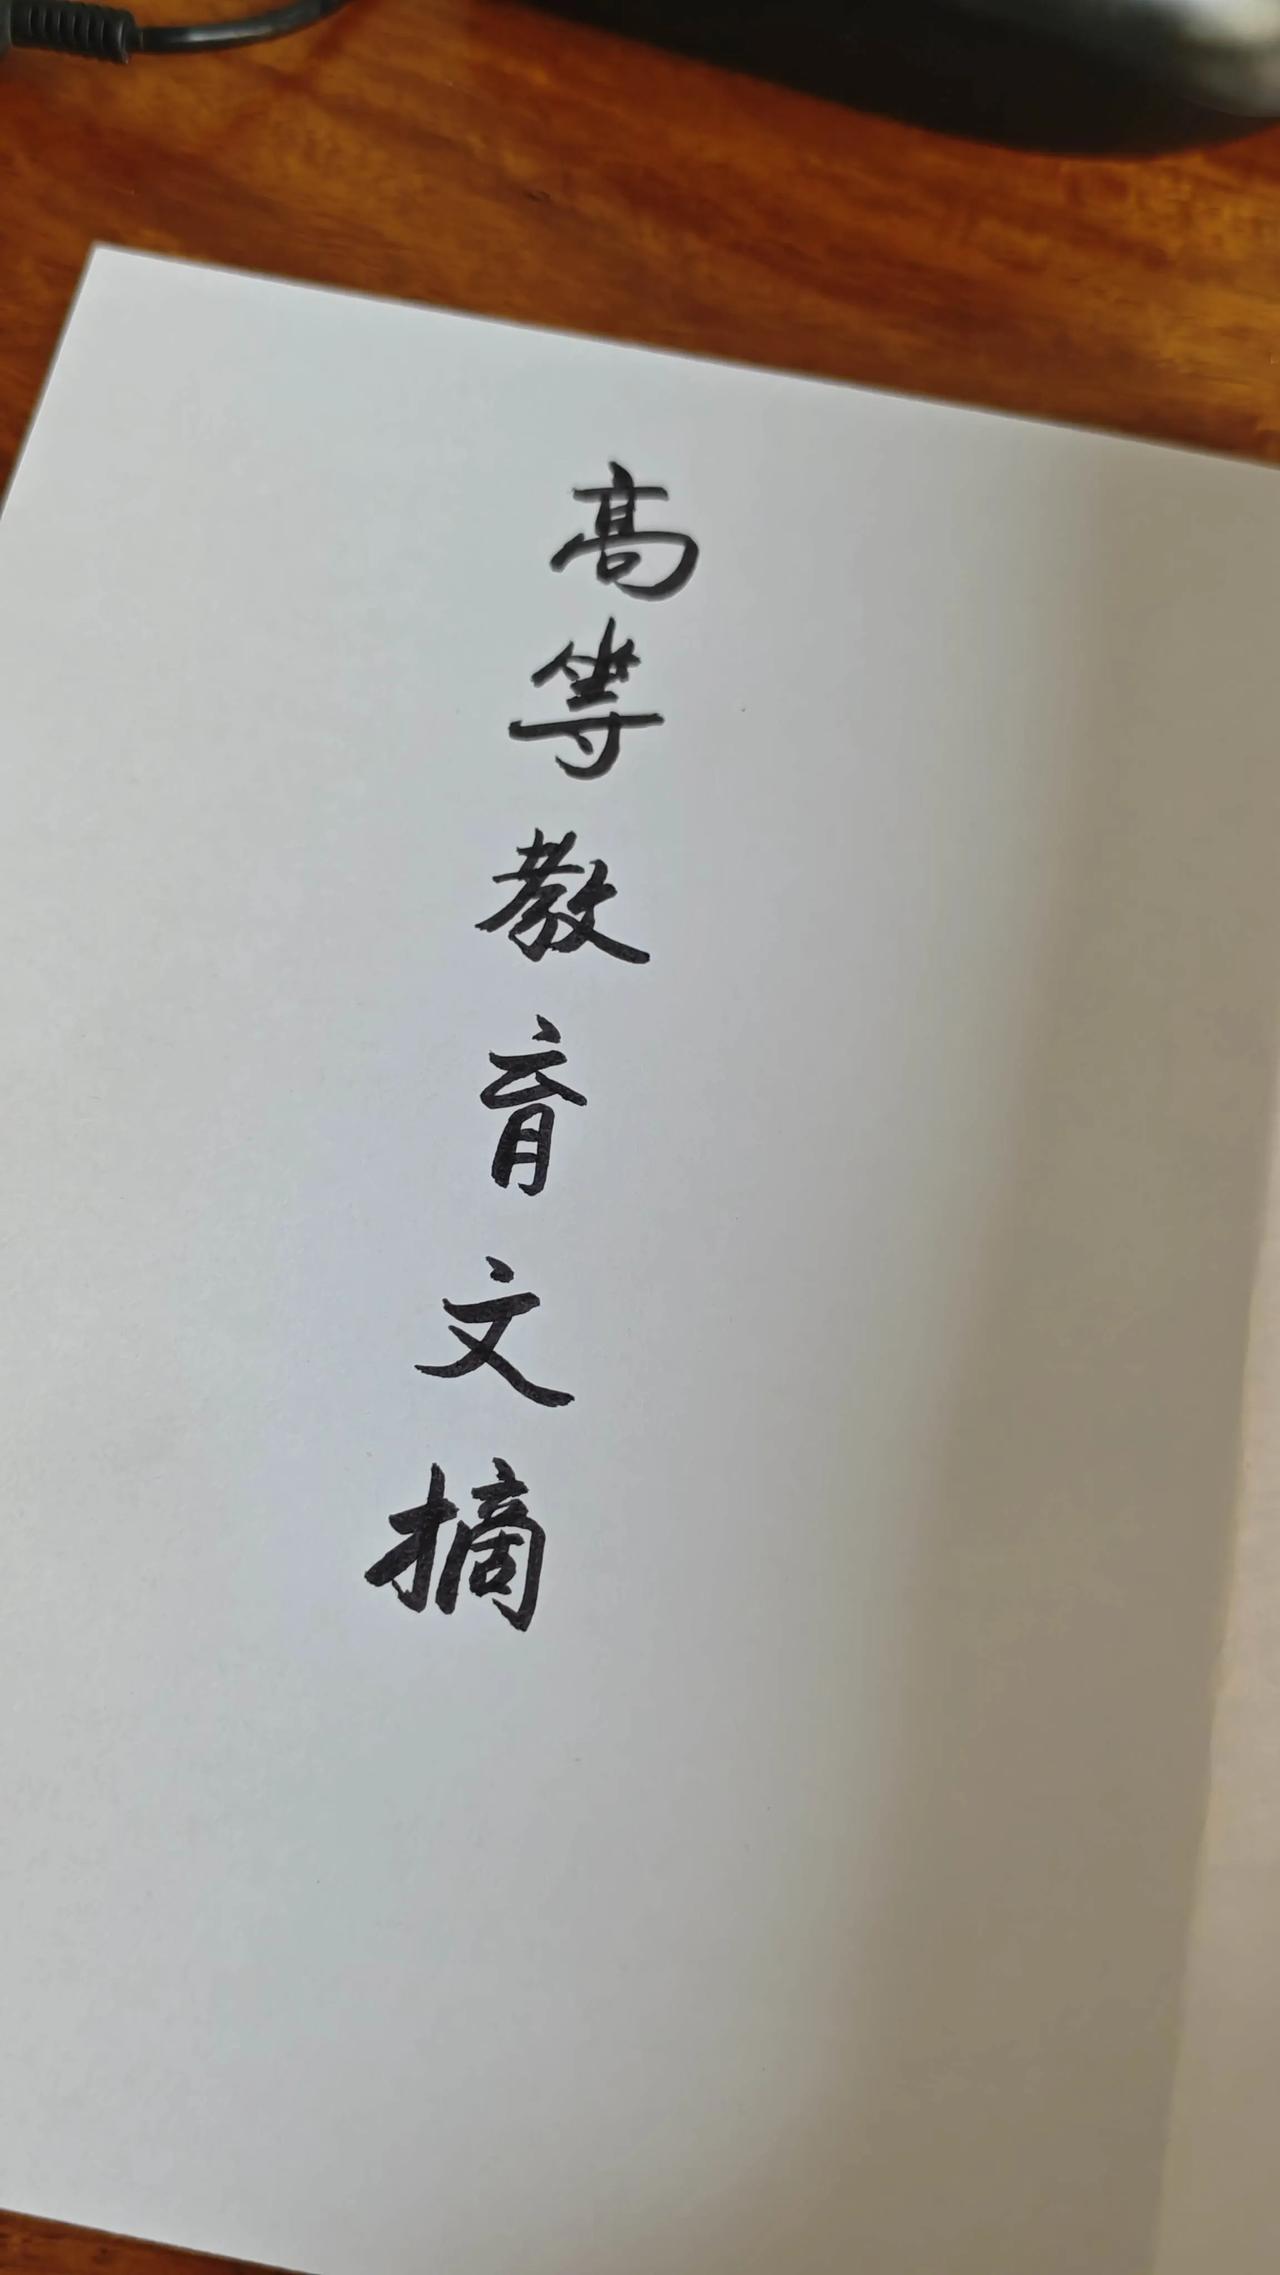 髙等教育文摘